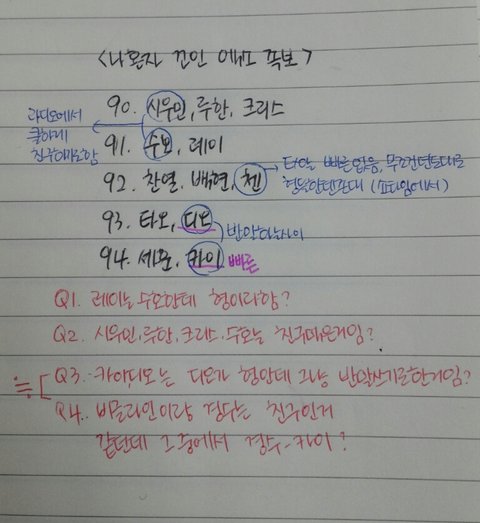 <나혼자 꼬인 엑소 족보>
90. 시우민, 루한, 크리스
라디오에서
쿨하게
친구하기로함
91. 수호, 레이
92. 찬열, 백현, 첸
→ 타오는 빠른 없음, 무조건 년도대로
형들한텐존대 (쇼타임에서)
93. 타오, 디오
반말하는사이
94. 세훈, 카이 빠른
Q1. 레이는 수호한테 형이라함?
Q2. 시우민, 루한, 크리스, 수호는 친구먹은거임?
≒[ Q3. 카이디오는 디오가 형인데 그냥 반말쓰기로한거임?
Q4. 비글라인이랑 경수는 친구인거
같던데 그중에서 경수-카이?